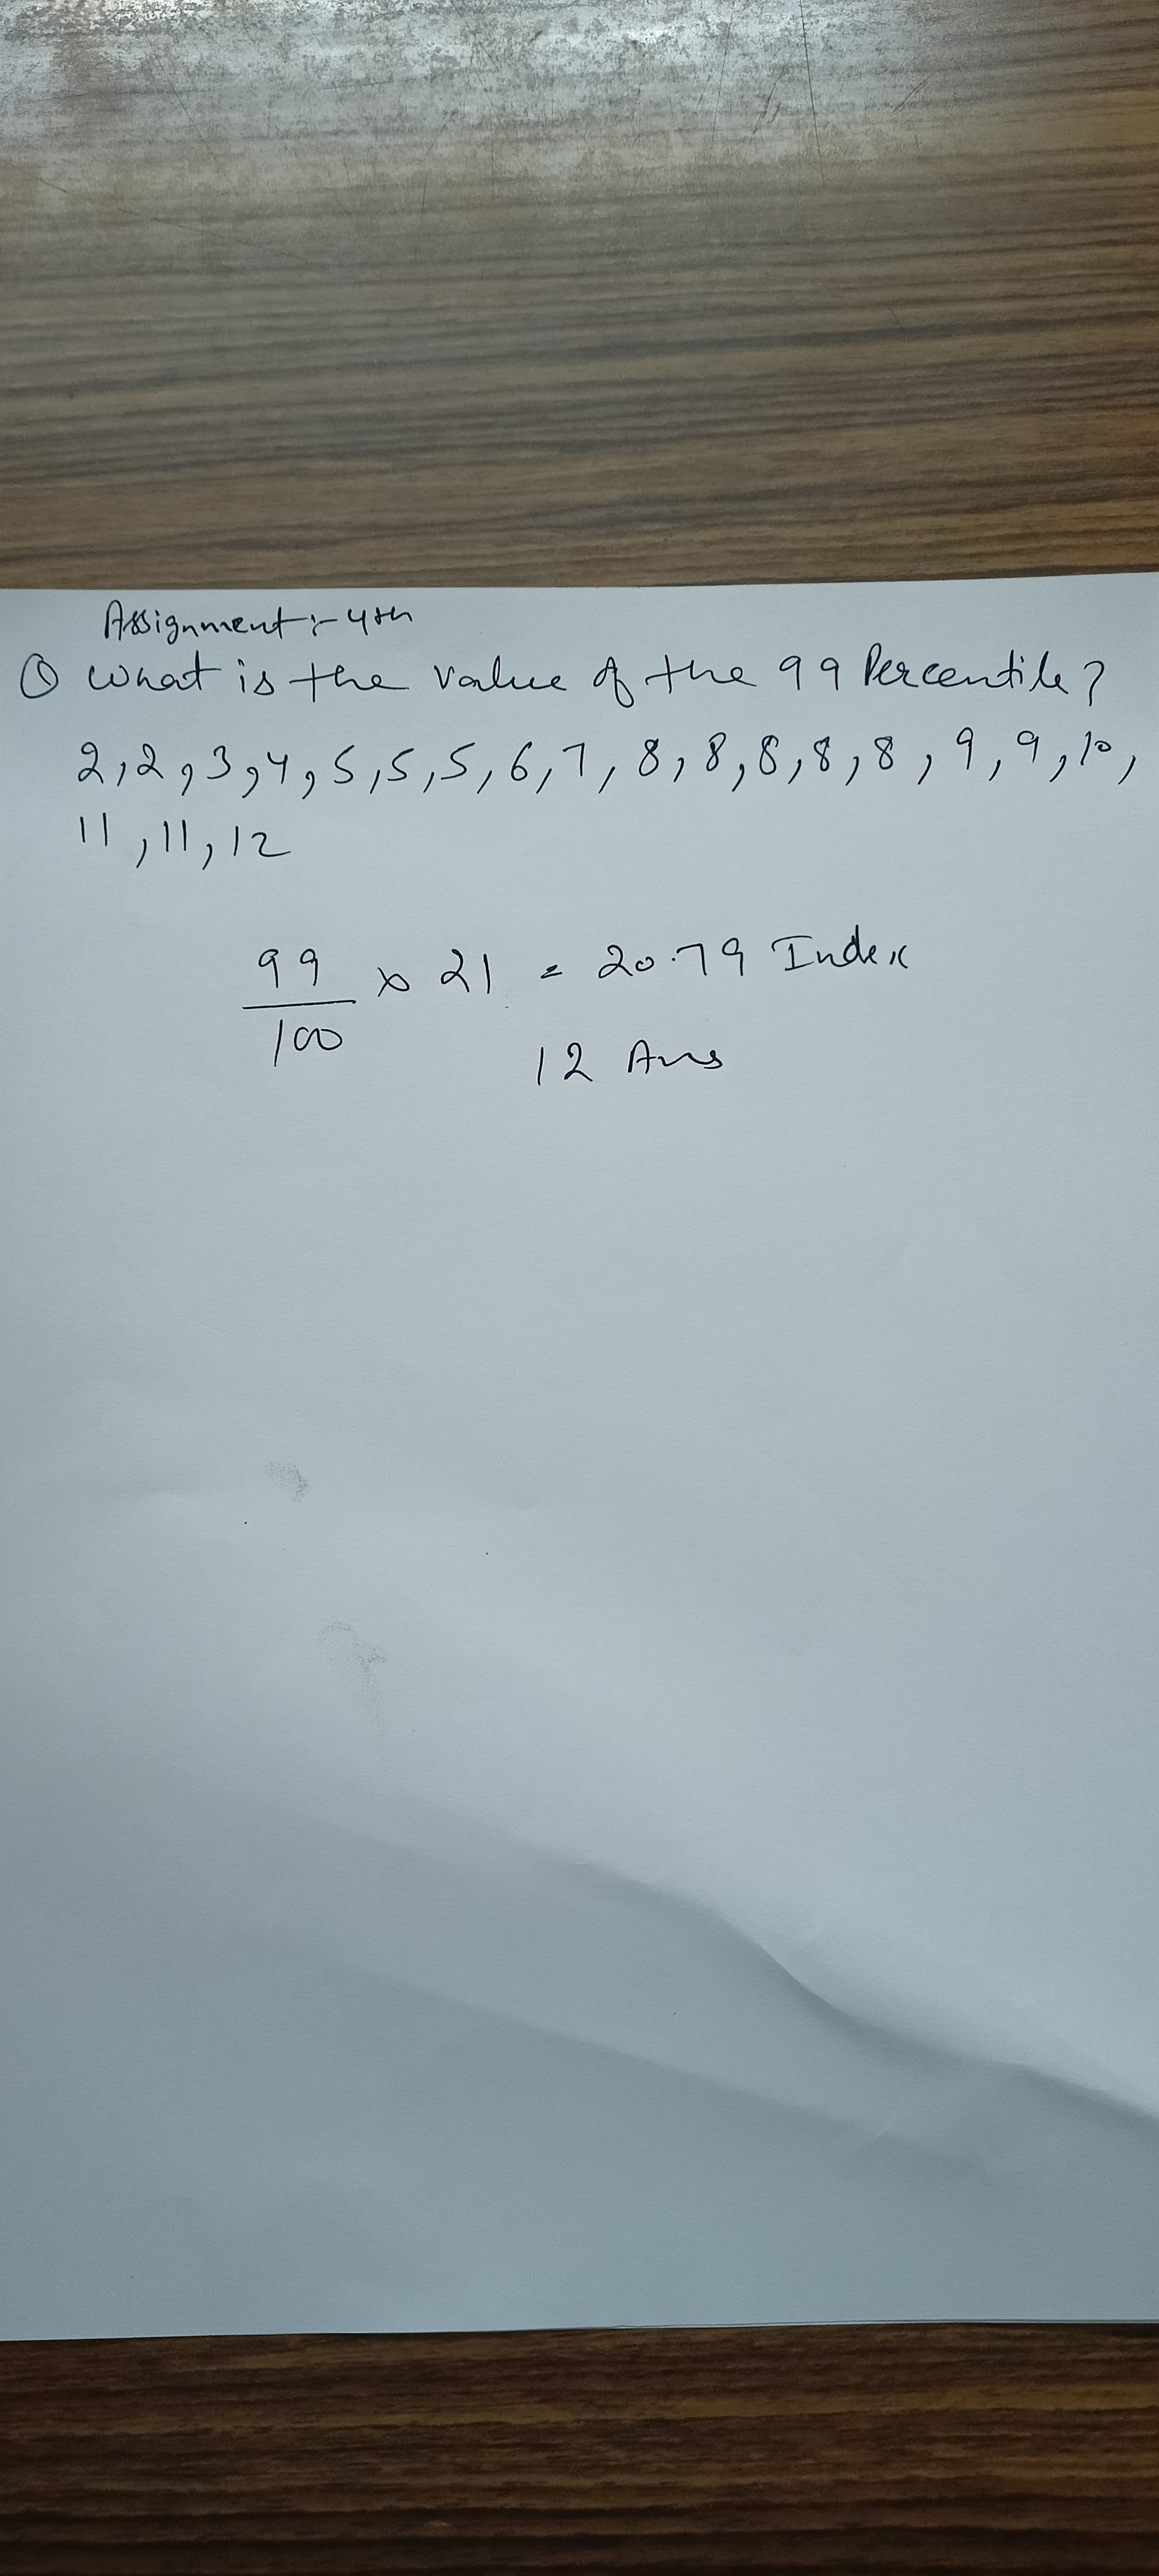 Assignment :- 4th
Q What is the value of the 99 Percentile?
2, 2, 3, 4, 5, 5, 5, 6, 7, 8, 8, 8, 8, 8, 9, 9, 10,
11, 11, 12
99/100 x 21 = 20.79 Index
12 Ans